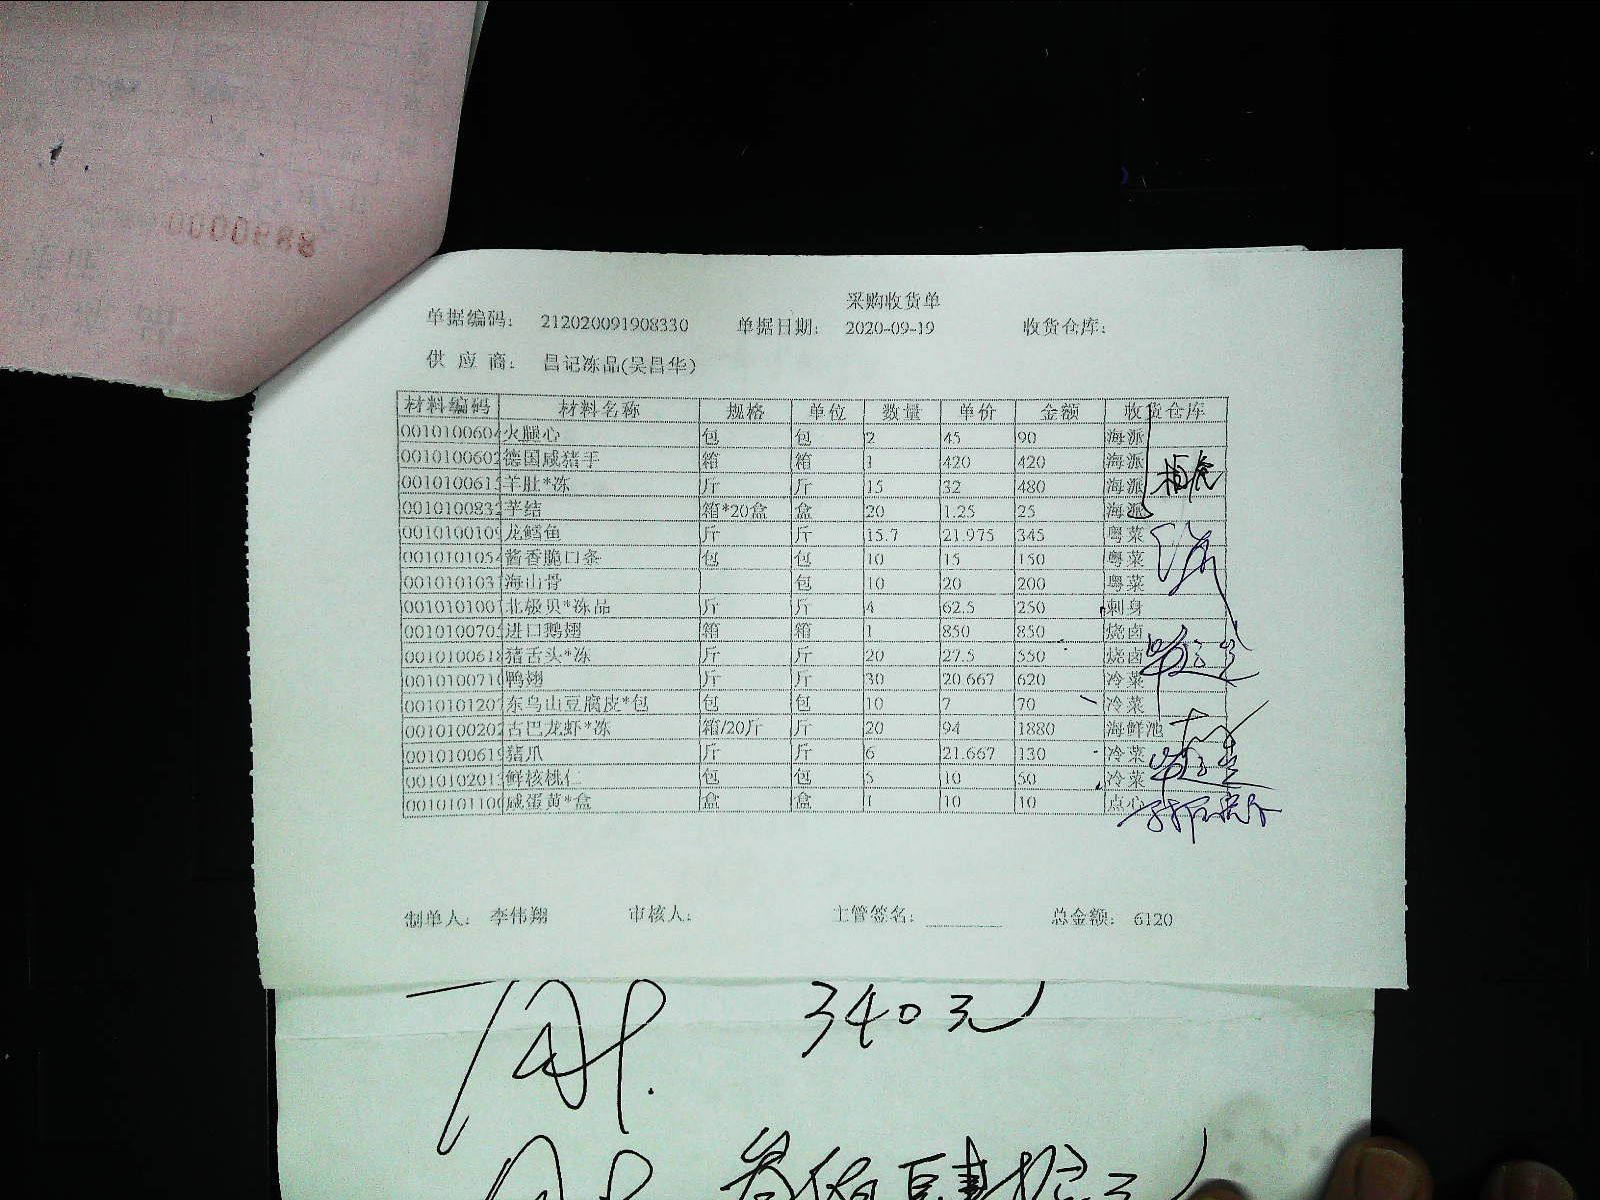 0000688
采购收货单
单据编码: 212020091908330 单据日期: 2020-09-19 收货仓库:
供 应 商: 昌记冻品(吴昌华)
材料编码 材料名称 规格 单位 数量 单价 金额 收货仓库
0010100604 火腿心 包 包 2 45 90 海派
0010100602 德国咸猪手 箱 箱 1 420 420 海派
001010061 羊肚*冻 斤 斤 15 32 480 海派
001010083 芋结 箱*20盒 盒 20 1.25 25 海派
001010010 龙鳕鱼 斤 斤 15.7 21.975 345 粤菜
001010105 酱香脆口条 包 包 10 15 150 粤菜
001010103 海山骨 包 10 20 200 粤菜
001010100 北极贝*冻品 斤 斤 4 62.5 250 刺身
001010070 进口鹅翅 箱 箱 1 850 850 烧卤
001010061 猪舌头*冻 斤 斤 20 27.5 550 烧卤
001010071 鸭翅 斤 斤 30 20.667 620 冷菜
001010120 东乌山豆腐皮*包 包 包 10 7 70 冷菜
001010020 古巴龙虾*冻 箱/20斤 斤 20 94 1880 海鲜池
001010061 猪爪 斤 斤 6 21.667 130 冷菜
001010201 鲜核桃仁 包 包 5 10 50 冷菜
001010110 咸蛋黄*盒 盒 盒 1 10 10 点心
制单人: 李伟翔 审核人: 主管签名: 总金额: 6120
340元